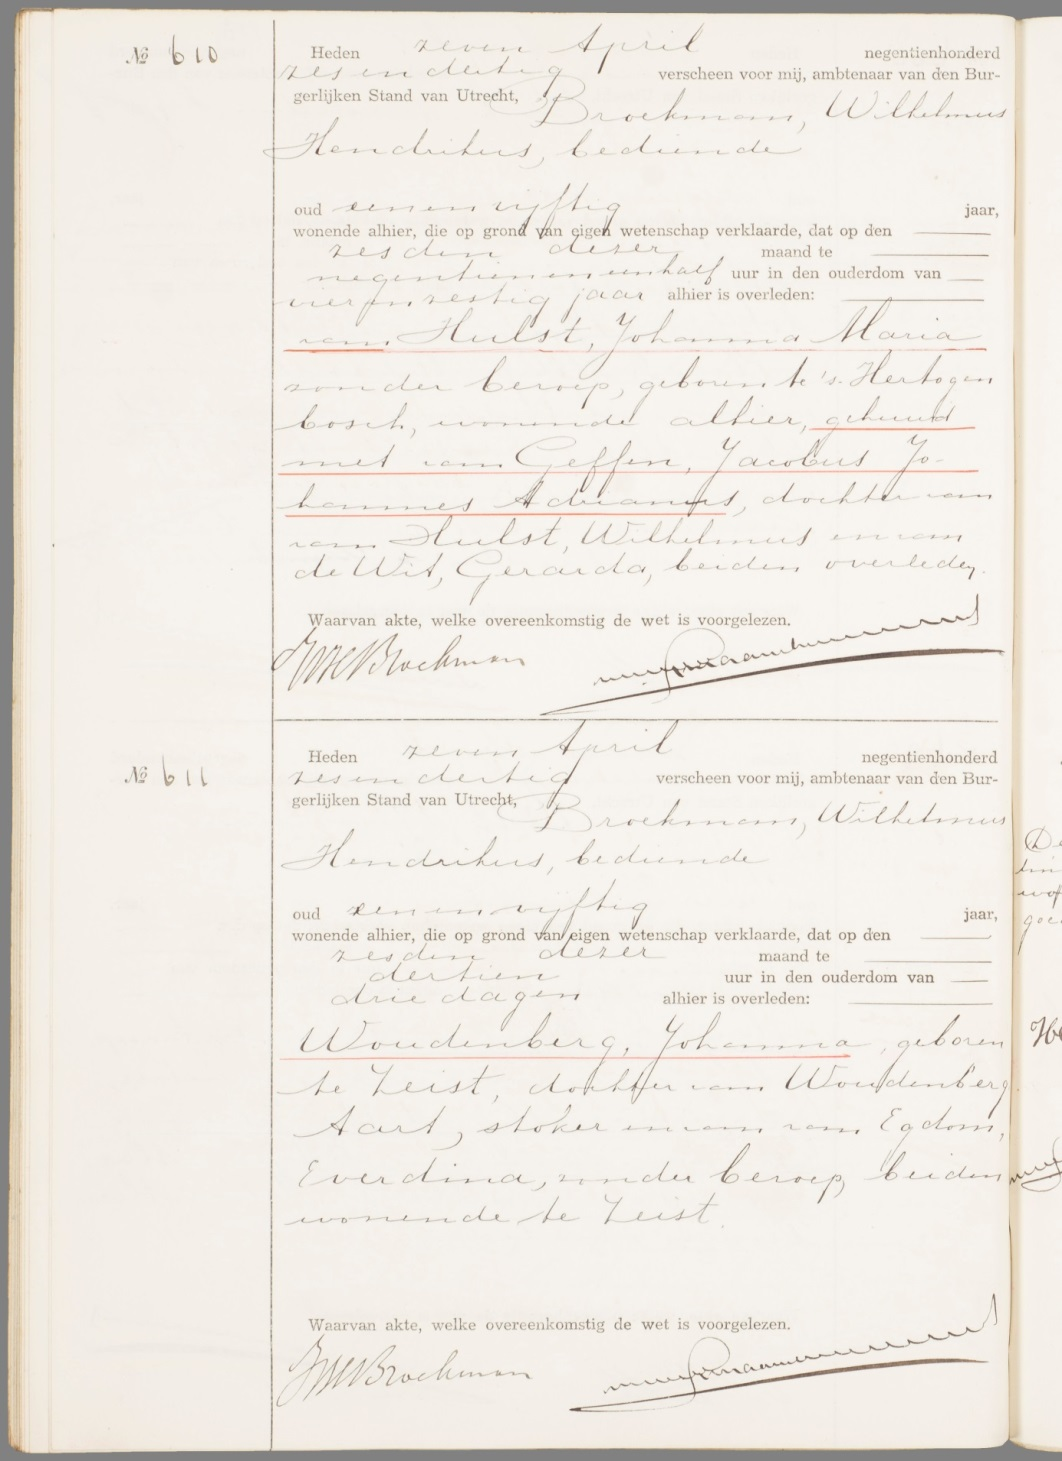 № 610
Heden zeven April negentienhonderd
zes en dertig verscheen voor mij, ambtenaar van den Bur-
gerlijken Stand van Utrecht, Broekman, Wilhelmus
Hendrikus, bediende
oud een en vijftig jaar,
wonende alhier, die op grond van eigen wetenschap verklaarde, dat op den
zesden dezer maand te
negentien en een half uur in den ouderdom van
vier en zestig jaar alhier is overleden:
van Hulst, Johanna Maria
zonder beroep, geboren te 's-Hertogen
bosch, wonende alhier, gehuwd
met van Geffen, Jacobus Jo-
hannes Adrianus, dochter van
van Hulst, Wilhelmus en van
de Wit, Gerarda, beiden overleden.
Waarvan akte, welke overeenkomstig de wet is voorgelezen.
WHBroekman
№ 611
Heden zeven April negentienhonderd
zes en dertig verscheen voor mij, ambtenaar van den Bur-
gerlijken Stand van Utrecht, Broekman, Wilhelmus
Hendrikus, bediende
oud een en vijftig jaar,
wonende alhier, die op grond van eigen wetenschap verklaarde, dat op den
zesden dezer maand te
dertien uur in den ouderdom van
drie dagen alhier is overleden:
Woudenberg, Johanna, geboren
te Zeist, dochter van Woudenberg
Aart, stoker en van van Egdom,
Everdina, zonder beroep, beiden
wonende te Zeist.
Waarvan akte, welke overeenkomstig de wet is voorgelezen.
WHBroekman